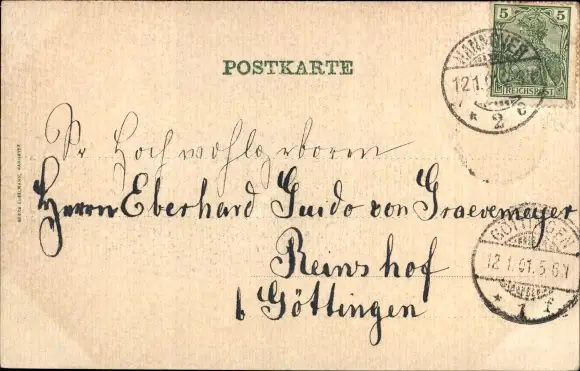 5 5
REICHSPOST
HANNOVER
12.1.
* 2 c
POSTKARTE
Sr Hochwohlgeboren
Herrn Eberhard Guido von Graevemeyer
Reinshof
b Göttingen
GÖTTINGEN
12.1.01.5-6N
* 1 f